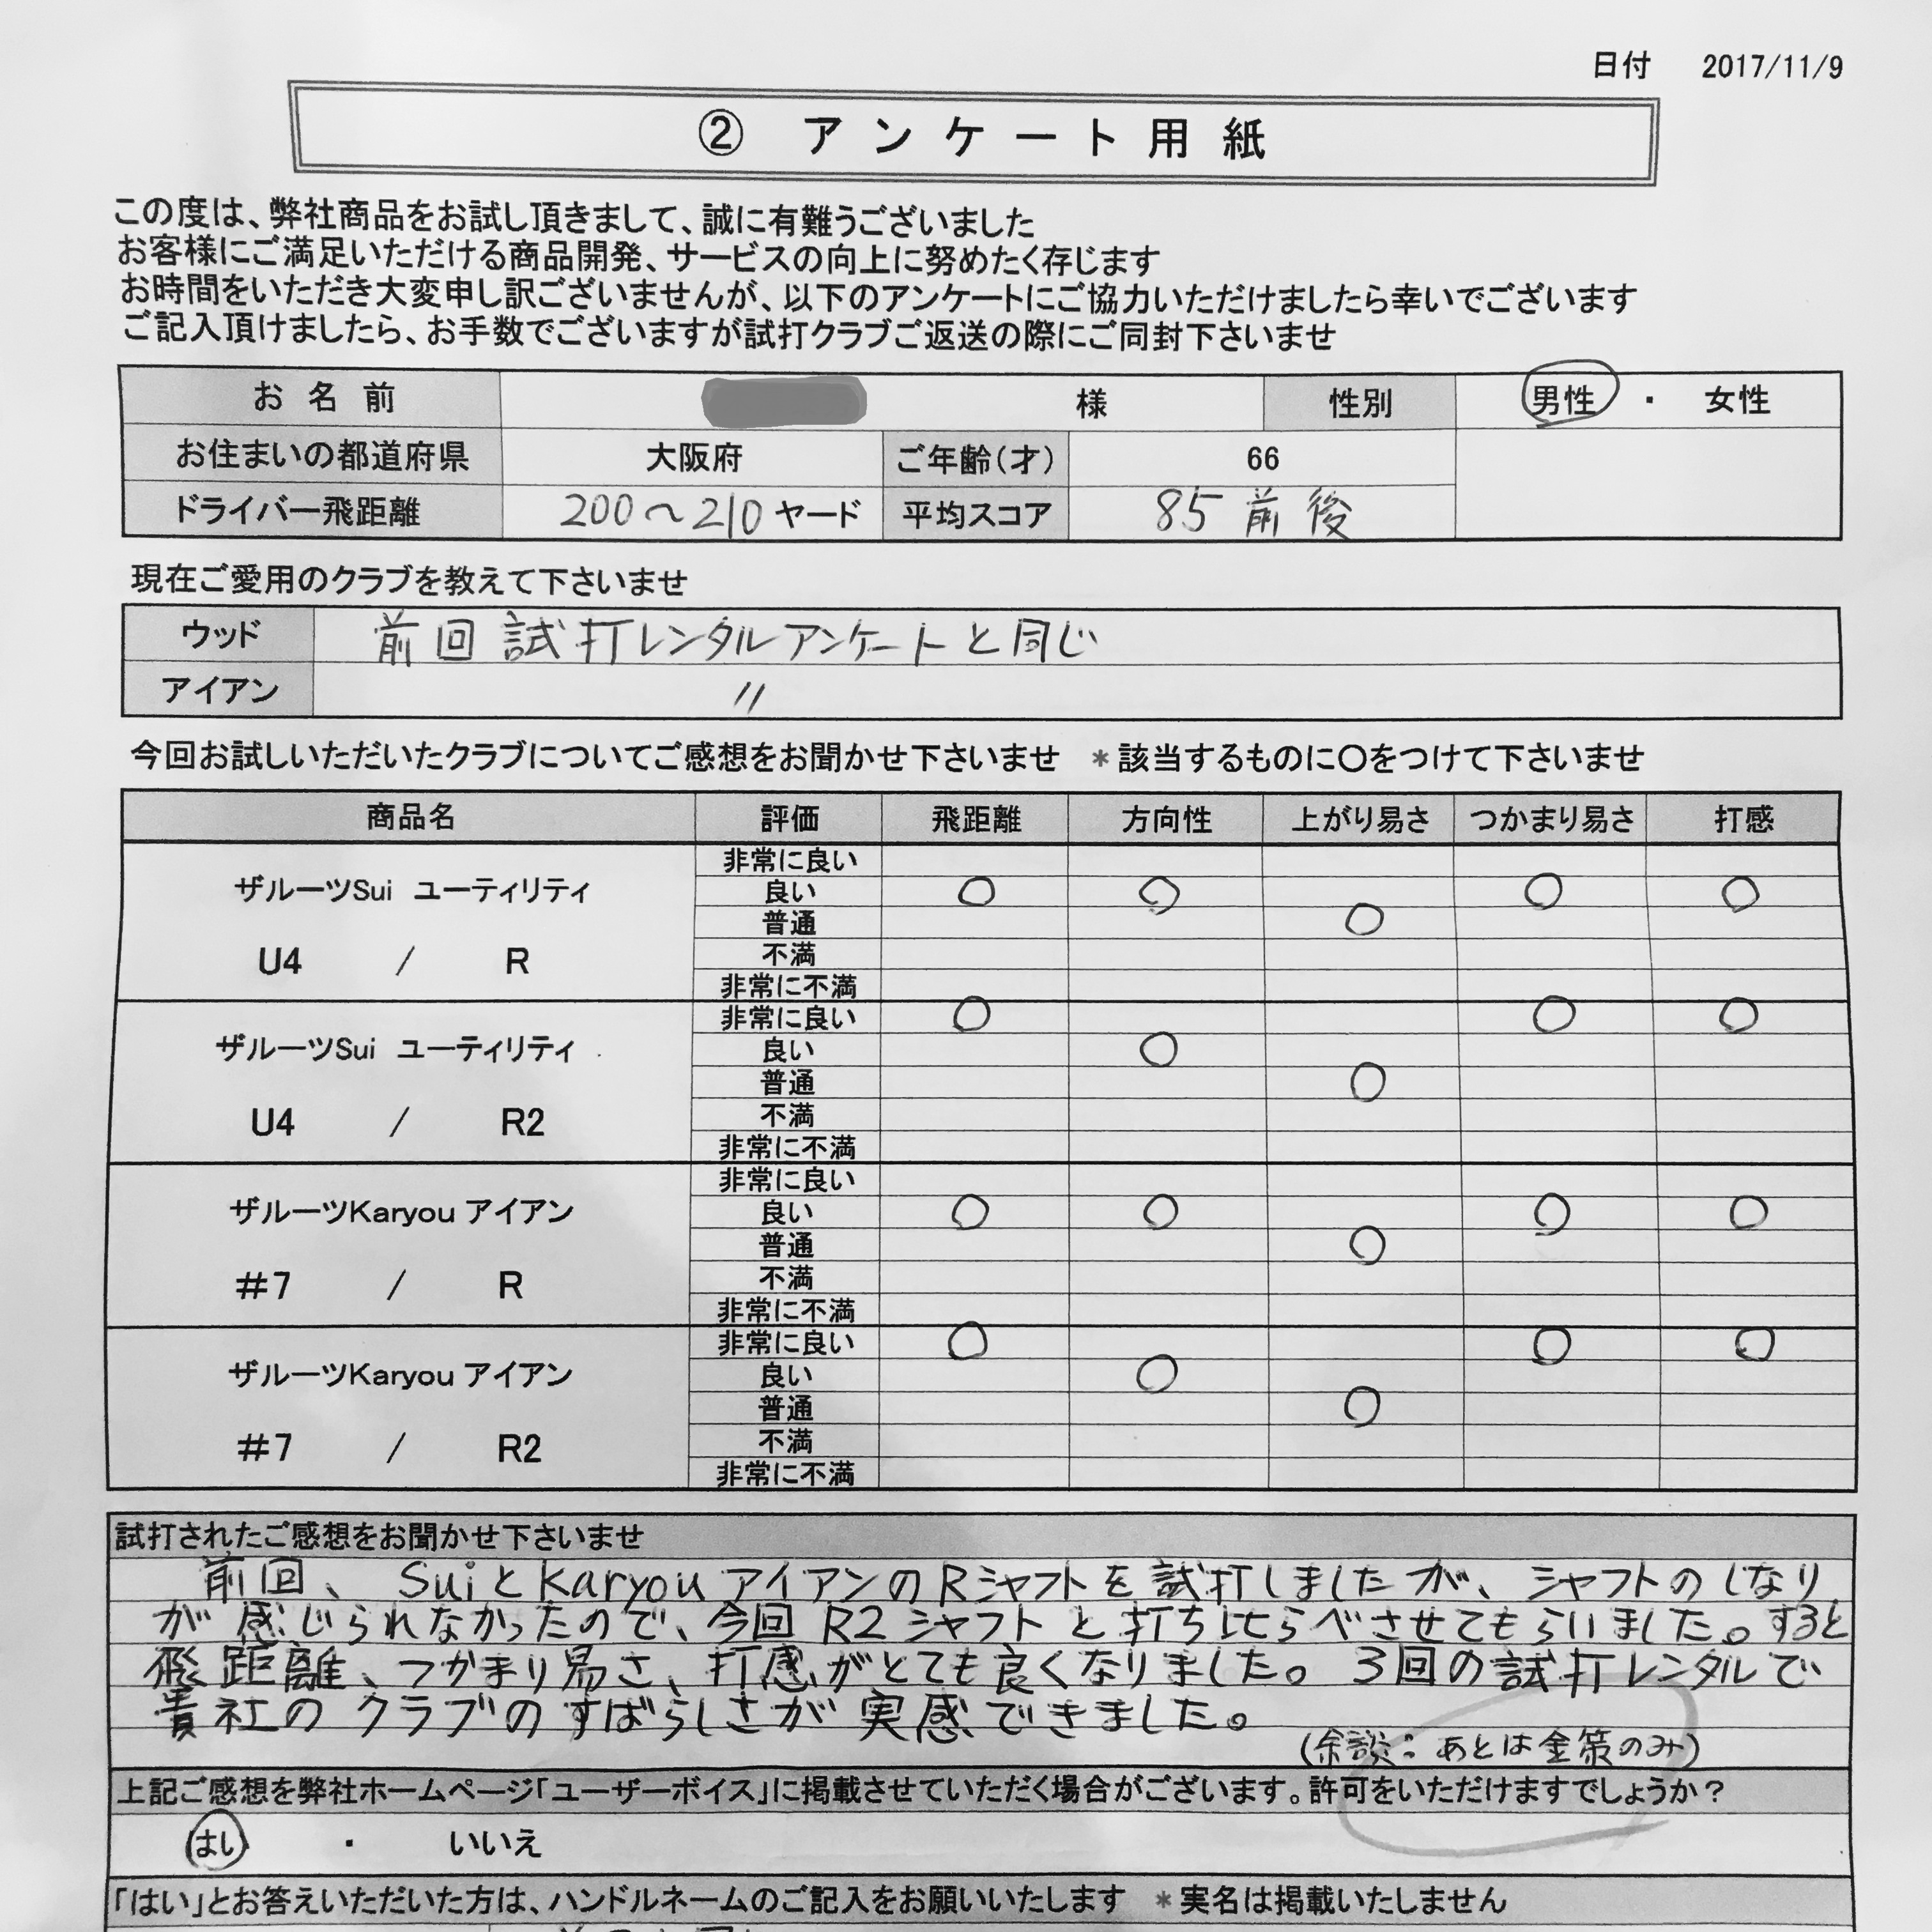 日付 2017/11/9
② アンケート用紙
この度は、弊社商品をお試し頂きまして、誠に有難うございました
お客様にご満足いただける商品開発、サービスの向上に努めたく存じます
お時間をいただき大変申し訳ございませんが、以下のアンケートにご協力いただけましたら幸いでございます
ご記入頂けましたら、お手数でございますが試打クラブご返送の際にご同封下さいませ
お名前 様 性別 男性 ・ 女性
お住まいの都道府県 大阪府 ご年齢(才) 66
ドライバー飛距離 200〜210 ヤード 平均スコア 85前後
現在ご愛用のクラブを教えて下さいませ
ウッド 前回試打レンタルアンケートと同じ
アイアン 〃
今回お試しいただいたクラブについてご感想をお聞かせ下さいませ *該当するものに〇をつけて下さいませ
商品名 評価 飛距離 方向性 上がり易さ つかまり易さ 打感
ザルーツSui ユーティリティ
U4 / R
非常に良い
良い 〇 〇 〇 〇
普通 〇
不満
非常に不満
ザルーツSui ユーティリティ
U4 / R2
非常に良い 〇 〇 〇
良い 〇
普通 〇
不満
非常に不満
ザルーツKaryou アイアン
#7 / R
非常に良い
良い 〇 〇 〇 〇
普通 〇
不満
非常に不満
ザルーツKaryou アイアン
#7 / R2
非常に良い 〇 〇 〇
良い 〇
普通 〇
不満
非常に不満
試打されたご感想をお聞かせ下さいませ
前回、SuiとKaryouアイアンのRシャフトを試打しましたが、シャフトのしなり
が感じられなかったので、今回R2シャフトと打ち比らべさせてもらいました。すると
飛距離、つかまり易さ、打感がとても良くなりました。3回の試打レンタルで
貴社のクラブのすばらしさが実感できました。
(余談：あとは金策のみ)
上記ご感想を弊社ホームページ「ユーザーボイス」に掲載させていただく場合がございます。許可をいただけますでしょうか？
はい ・ いいえ
「はい」とお答えいただいた方は、ハンドルネームのご記入をお願いいたします *実名は掲載いたしません